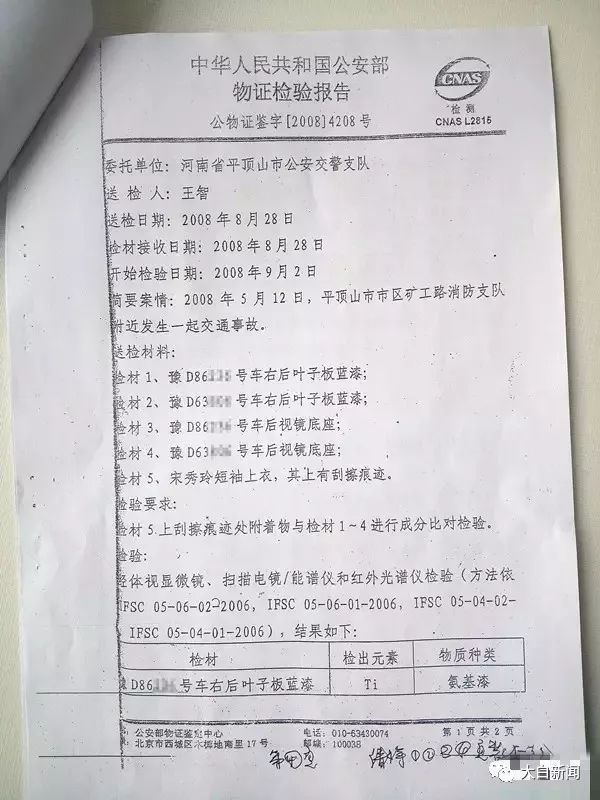 中华人民共和国公安部
物证检验报告
公物证鉴字[2008]4208号
CNAS
检测
CNAS L2815
委托单位：河南省平顶山市公安交警支队
送 检 人：王智
送检日期：2008年8月28日
检材接收日期：2008年8月28日
开始检验日期：2008年9月2日
简要案情：2008 年5月12日，平顶山市市区矿工路消防支队
附近发生一起交通事故。
送检材料：
检材1、豫D86 号车右后叶子板蓝漆；
检材2、豫D63 号车右后叶子板蓝漆；
检材3、豫D86 号车后视镜底座；
检材4、豫D63 号车后视镜底座；
检材5、宋秀玲短袖上衣，其上有刮擦痕迹。
检验要求：
检材5.上刮擦痕迹处附着物与检材1~4进行成分比对检验。
检验：
经体视显微镜、扫描电镜/能谱仪和红外光谱仪检验（方法依
IFSC 05-06-02-2006, IFSC 05-06-01-2006, IFSC 05-04-02-
IFSC 05-04-01-2006），结果如下：
检材 检出元素 物质种类
D86 号车右后叶子板蓝漆 Ti 氨基漆
公安部物证鉴定中心 电话：010-63430074 第 1 页 共 2 页
北京市西城区木樨地南里17号 邮编：100038
大白新闻